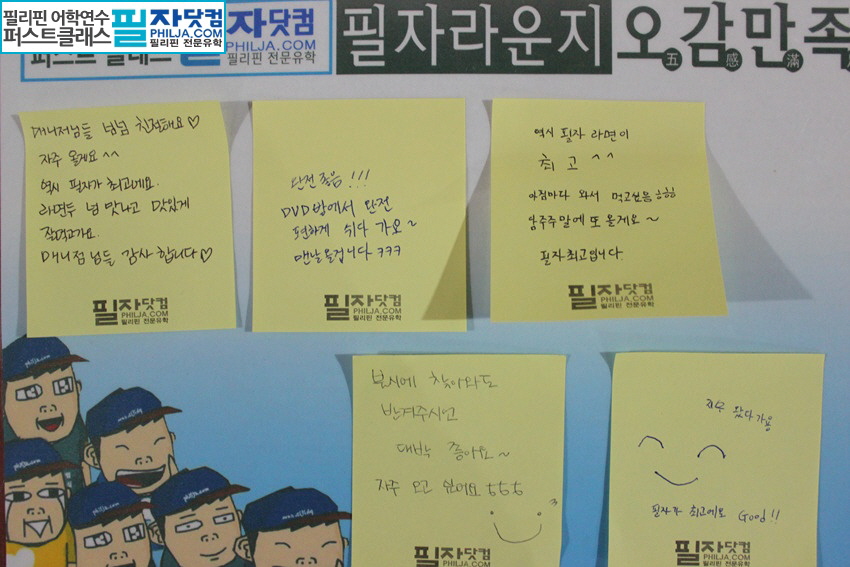 필리핀 어학연수
퍼스트클래스
필자닷컴
PHILJA.COM
필리핀 전문유학
자닷컴
PHILJA.COM
필리핀 전문유학
필자라운지 오감만족
五 感 滿
매니저님들 넘넘 친절해요♡
자주 올게요^^
역시 필자가 최고에요.
라면두 넘 맛나고 맛있게
잘먹고가요.
매니점님들 감사합니다♡
필자닷컴
PHILJA.COM
필리핀 전문유학
완전좋음!!!
DVD방에서 완전
편하게 쉬다 가요~
맨날올겁니다 ㅋㅋㅋ
필자닷컴
PHILJA.COM
필리핀 전문유학
역시 필자 라면이
최고^^
아침마다 와서 먹고싶음 ㅎㅎㅎ
담주주말에 또 올게요~
필자최고입니다
필자닷컴
PHILJA.COM
필리핀 전문유학
찾아와도
반겨주시언
대박 좋아요~
자주 오고 싶어요 ㅎㅎㅎ
필자닷컴
PHILJA.COM
필리핀 전문유학
왔다가용
필자가 최고에요 Good!!
필자닷컴
PHILJA.COM
필리핀 전문유학
philja.com
philja.com
philja.com